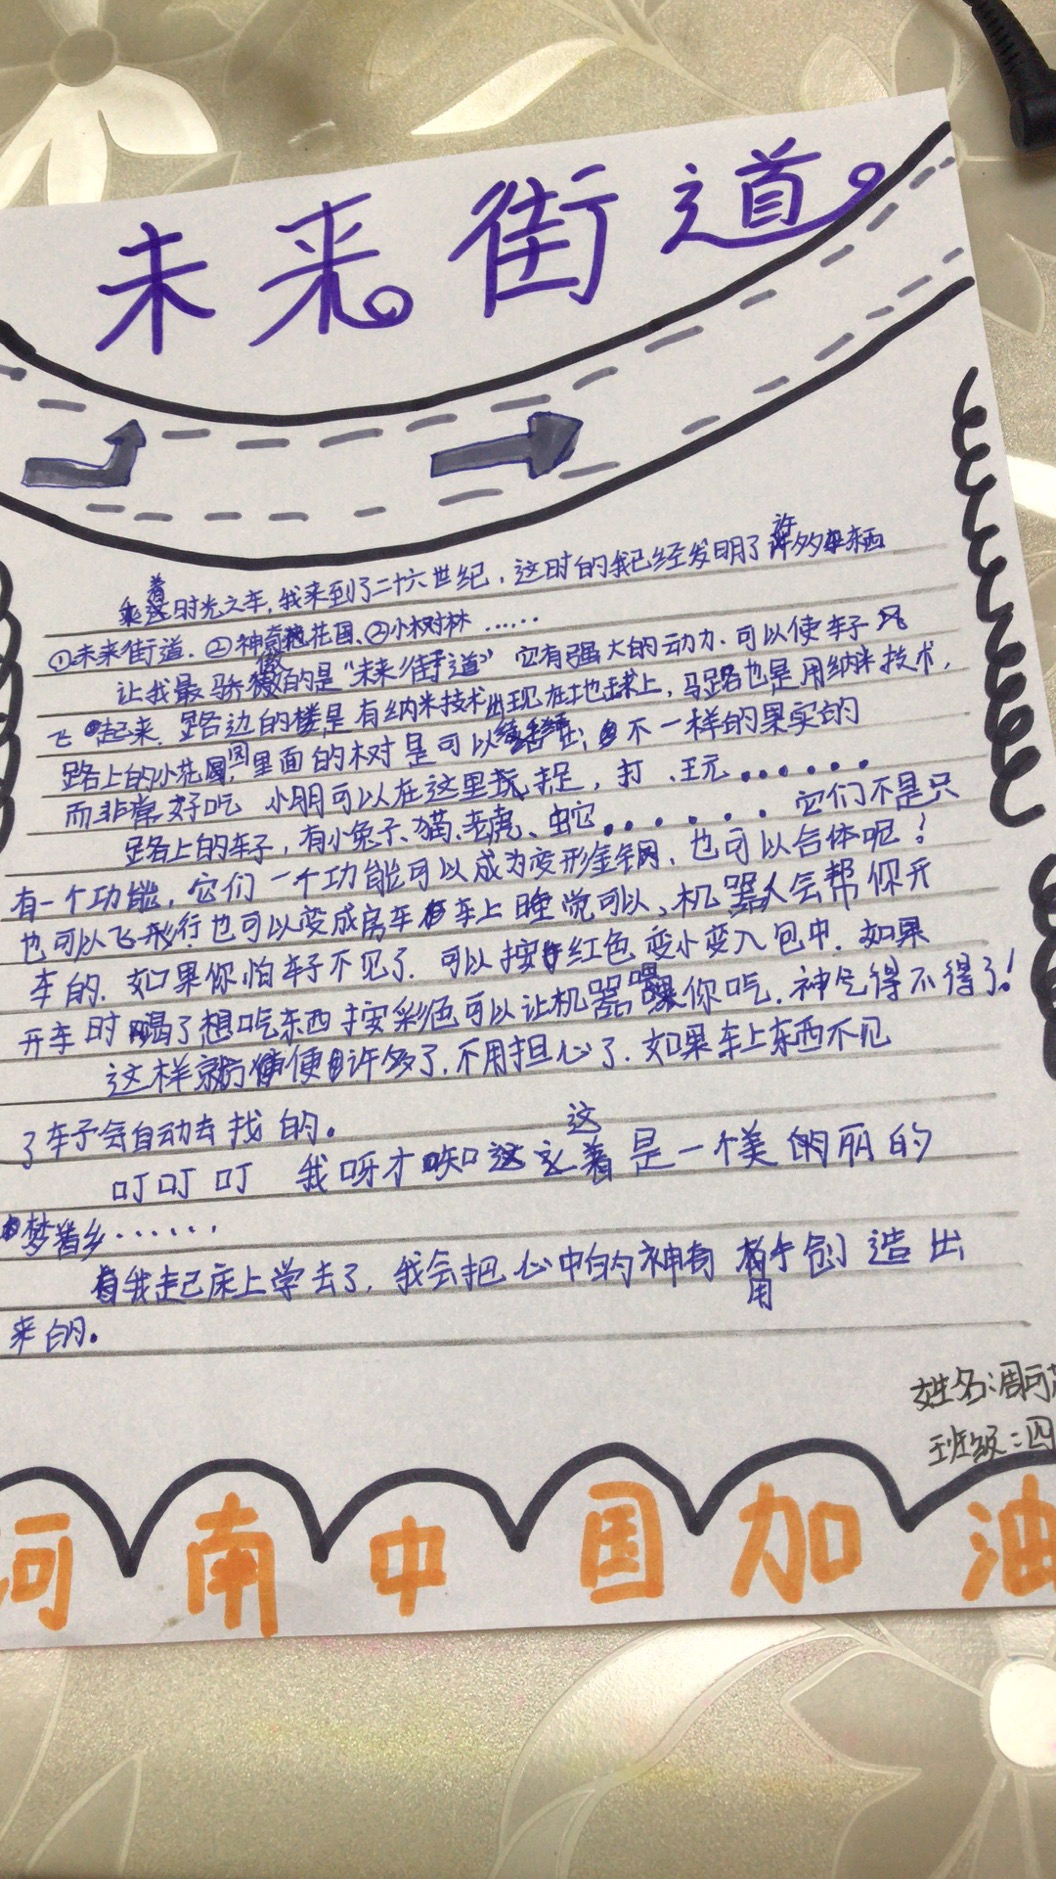 未来街道
乘着时光之车,我来到了二十六世纪,这时的我已经发明了许多东西
①未来街道.②神奇花园、②小树林……
让我最骄傲的是“未来街道”它有强大的动力.可以使车子飞
飞起来.路边的楼是有纳米技术出现在地球上,马路也是用纳米技术,
路上的小花园,里面的树是可以 不一样的果实的
而非常好吃 小朋可以在这里玩捉,打、玩……
路上的车子,有小兔子、猫、老虎、蛇……它们不是只
有一个功能,它们一个功能可以成为变形金钢,也可以合体呢!
也可以飞飛行也可以变成房车 车上睡觉可以、机器人会帮你开
车的.如果你怕车子不见了.可以按 红色变小变入包中.如果
开车时 了想吃东西按彩色可以让机器 你吃.神气得不得了!
这样就方便许多了,不用担心了.如果车上东西不见
了车子会自动去找的。
叮叮叮 我呀才 这 着是一个美的丽的
梦香乡……
我起床上学去了,我会把心中的神 用手创造出
来的。
姓名:周可
班级:四
河南中国加油